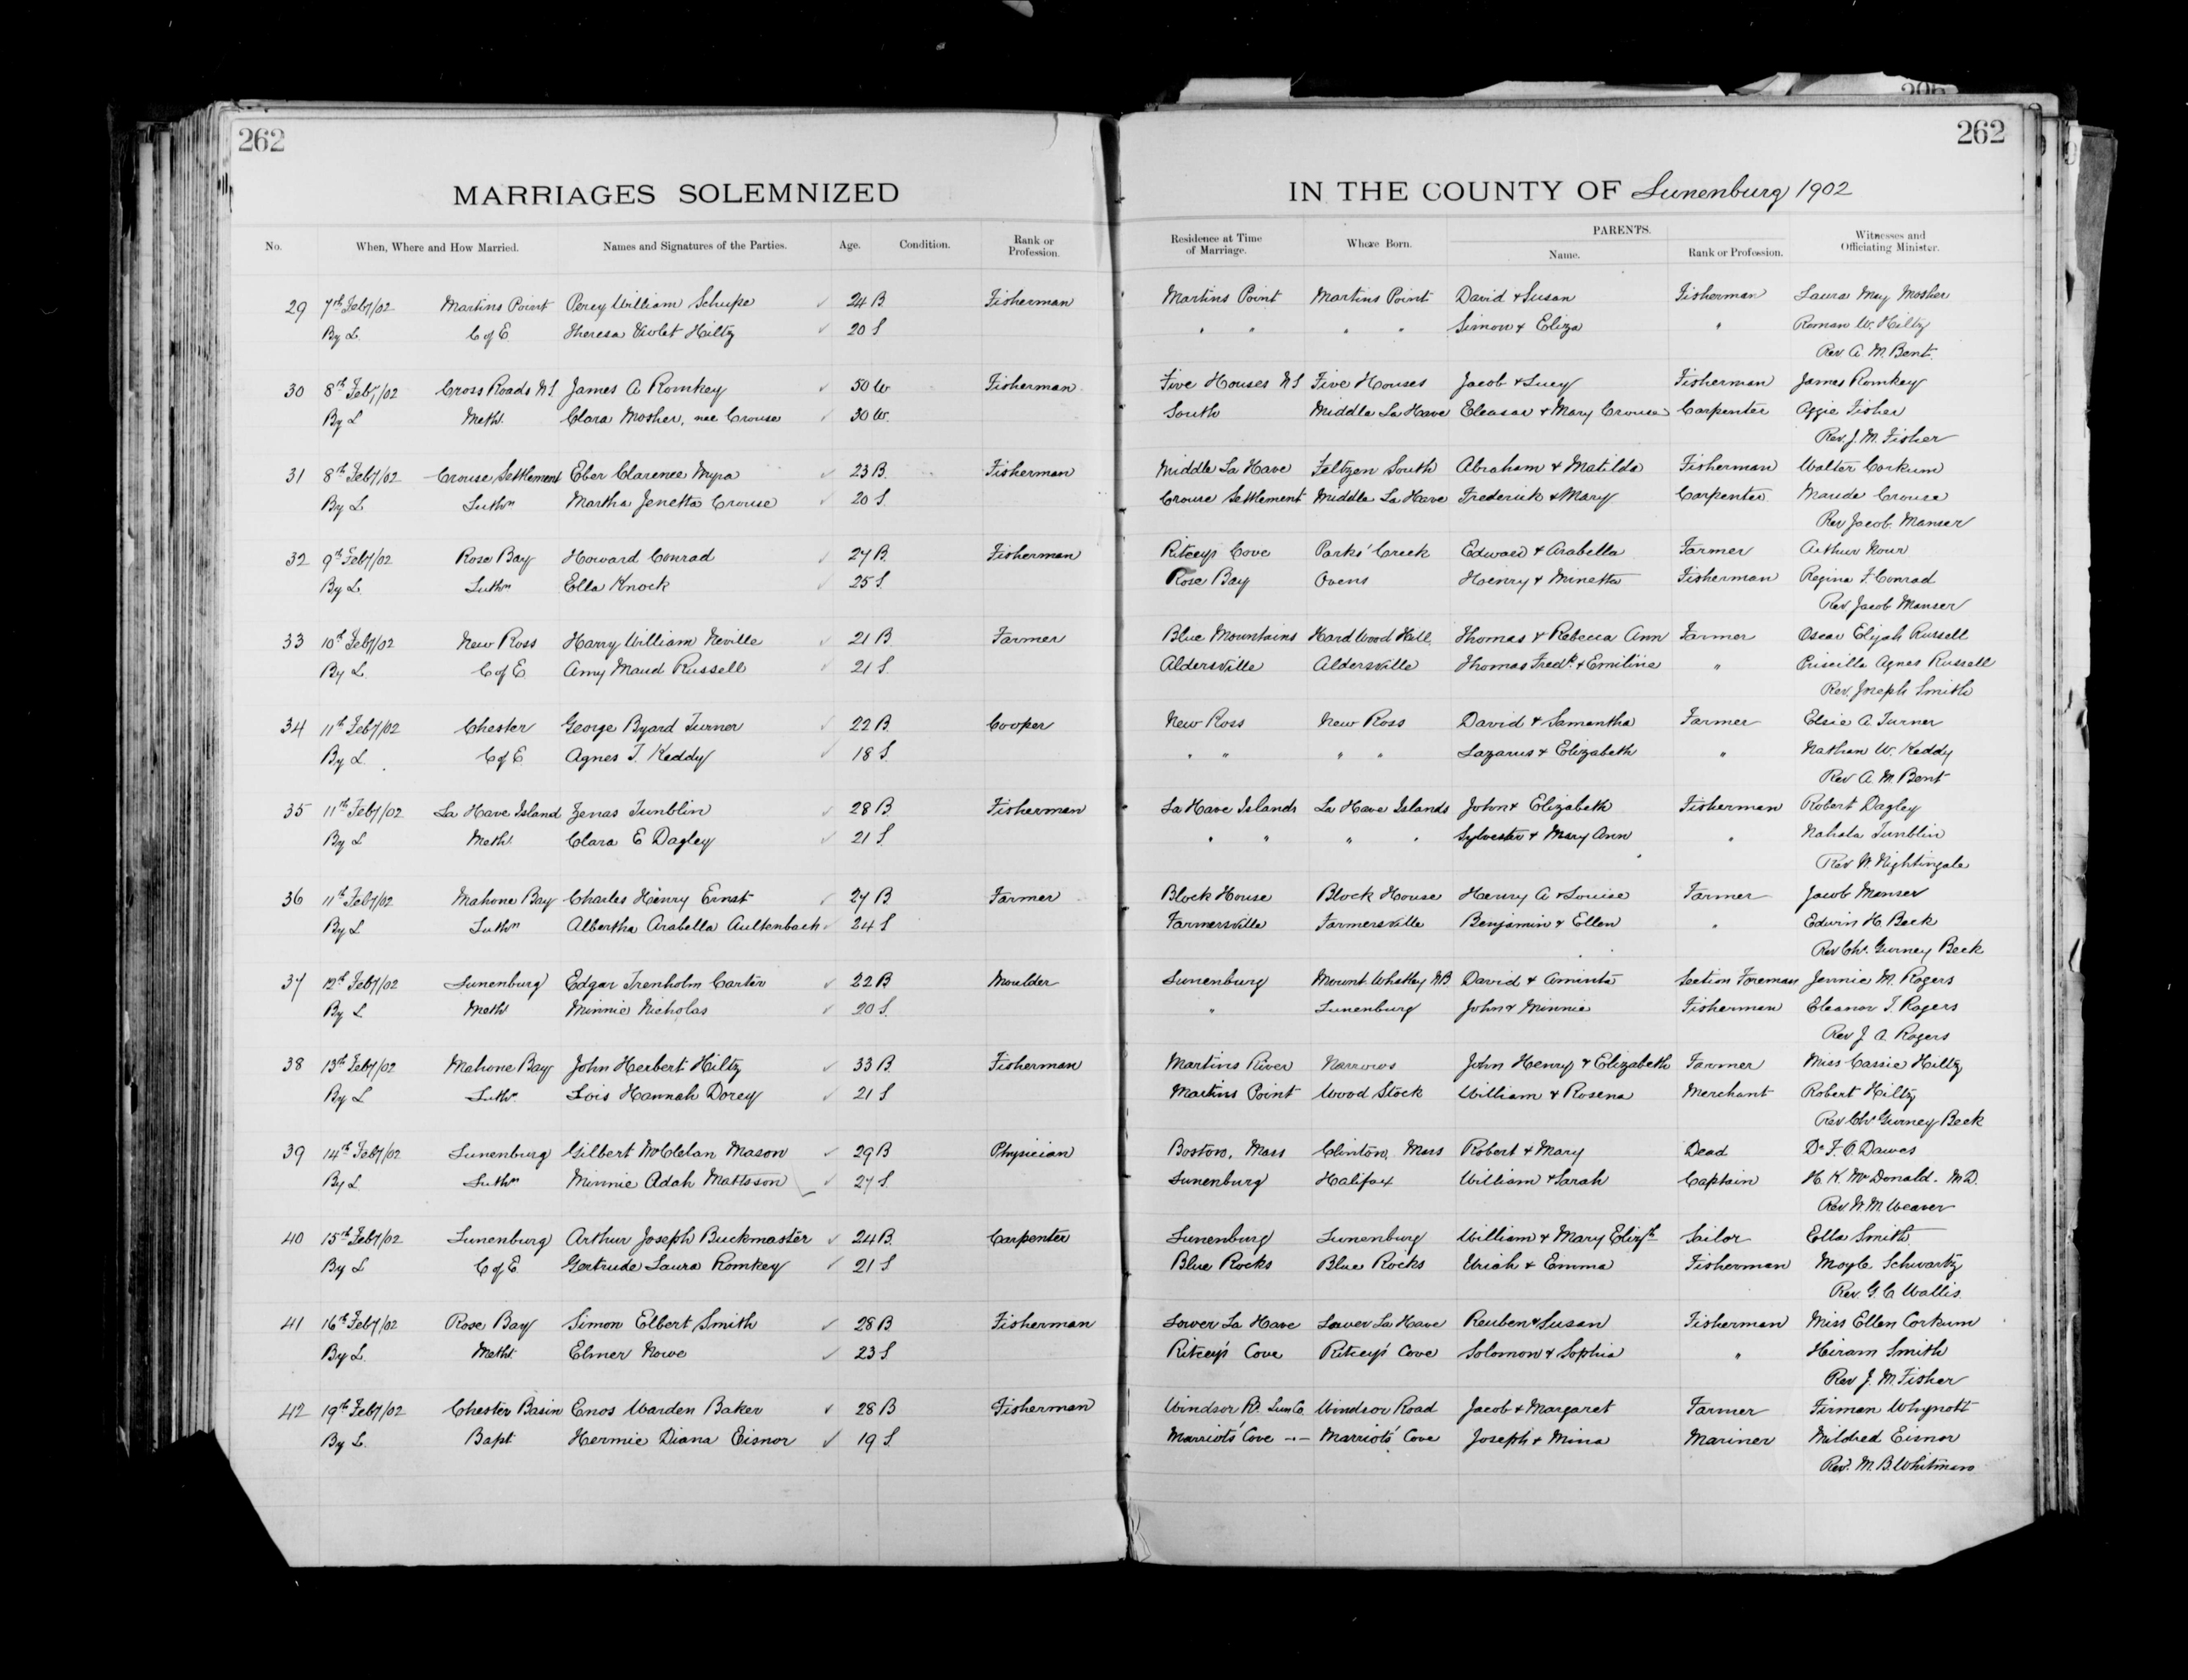 262
262
MARRIAGES SOLEMNIZED IN THE COUNTY OF Lunenburg 1902
No. When, Where and How Married. Names and Signatures of the Parties. Age. Condition. Rank or Profession. Residence at Time of Marriage. Where Born. PARENTS. Name. Rank or Profession. Witnesses and Officiating Minister.
29 7th Feby/02 Martins Point Percy William Schupe 24 B. Fisherman Martins Point Martins Point David & Susan Fisherman Laura May Mosher
By L. C of E. Theresa Violet Hiltz 20 S " " " " Simon & Eliza " Roman W. Hiltz
Rev. A. M. Bent.
30 8th Feby/02 Cross Roads NS James A Romkey 50 W Fisherman Five Houses NS Five Houses Jacob & Lucy Fisherman James Romkey
By L Meth. Clara Mosher, nee Crouse 30 W. South Middle La Have Eleasar & Mary Crouse Carpenter Aggie Fisher
Rev. J. M. Fisher
31 8th Feby/02 Crouse Settlement Eber Clarence Myra 23 B. Fisherman Middle La Have Feltzen South Abraham & Matilda Fisherman Walter Corkum
By L Luthn Martha Jenetta Crouse 20 S. Crouse Settlement Middle La Have Frederick & Mary Carpenter Maude Crouse
Rev Jacob Manser
32 9th Feby/02 Rose Bay Howard Conrad 27 B. Fisherman Ritceys Cove Parks' Creek Edward & Arabella Farmer Arthur
By L. Luthn Ella Knock 25 S. Rose Bay Ovens Henry & Minetta Fisherman Regina F. Conrad
Rev. Jacob Manser
33 10th Feby/02 New Ross Harry William Neville 21 B Farmer Blue Mountains Hard Wood Hill Thomas & Rebecca Ann Farmer Oscar Elijah Russell
By L. C of E. Amy Maud Russell 21 S. Aldersville Aldersville Thomas Fredk. & Emiline " Priscilla Agnes Russell
Rev. Joseph Smith
34 11th Feby/02 Chester George Byard Turner 22 B. Cooper New Ross New Ross David & Samantha Farmer Elsie A. Turner
By L. C of E. Agnes T. Keddy 18 S. " " " " Lazarus & Elizabeth " Nathan W. Keddy
Rev A. M. Bent
35 11th Feby/02 La Have Island Zenas Tumblin 28 B. Fisherman La Have Islands La Have Islands John & Elizabeth Fisherman Robert Dagley
By L Meth. Clara E Dagley 21 S. " " " " Sylvester & Mary Ann " Tumblin
Rev W. Nightingale
36 11th Feby/02 Mahone Bay Charles Henry Ernst 27 B Farmer Block House Block House Henry A & Louise Farmer Jacob Manser
By L Luthn Albertha Arabella Aultenbach 24 S Farmersville Farmersville Benjamin & Ellen " Edwin H. Beck
Rev Chs. Gurney Beck
37 12th Feby/02 Lunenburg Edgar Trenholm Carter 22 B Moulder Lunenburg Mount Whatley NB David & Aminta Section Foreman Jennie M. Rogers
By L. Meth Minnie Nicholas 20 S. " Lunenburg John & Minnie Fisherman Eleanor T. Rogers
Rev J. A. Rogers
38 13th Feby/02 Mahone Bay John Herbert Hiltz 33 B. Fisherman Martins River Narrows John Henry & Elizabeth Farmer Miss Cassie Hiltz
By L Luthn Lois Hannah Dorey 21 S Martins Point Wood Stock William & Rosena Merchant Robert Hiltz
Rev Chs Gurney Beck
39 14th Feby/02 Lunenburg Gilbert McClelan Mason 29 B Physician Boston, Mass Clinton, Mass Robert & Mary Dead Dr F. O. Dawes
By L. Luthn Minnie Adah Mattsson 27 S. Lunenburg Halifax William & Sarah Captain H. K. McDonald. M.D.
Rev W. M. Weaver
40 15th Feby/02 Lunenburg Arthur Joseph Buckmaster 24 B. Carpenter Lunenburg Lunenburg William & Mary Elizth Sailor Ella Smith
By L C of E Gertrude Laura Romkey 21 S Blue Rocks Blue Rocks Uriah & Emma Fisherman Moyle Schwartz
Rev. G. C Wallis.
41 16th Feby/02 Rose Bay Simon Elbert Smith 28 B Fisherman Lower La Have Lower La Have Reuben & Susan Fisherman Miss Ellen Corkum
By L. Metht. Elmer Nowe 23 S Ritcey's Cove Ritcey's Cove Solomon & Sophia " Hiram Smith
Rev J. M. Fisher
42 19th Feby/02 Chester Basin Enos Warden Baker 28 B Fisherman Windsor Rd. Lun Co. Windsor Road Jacob & Margaret Farmer Firman Whynott
By L. Bapt Hermie Diana Eisnor 19 S. Marriots' Cove -"- Marriots' Cove Joseph & Mina Mariner Mildred Eisnor
Rev. M. B. Whitman